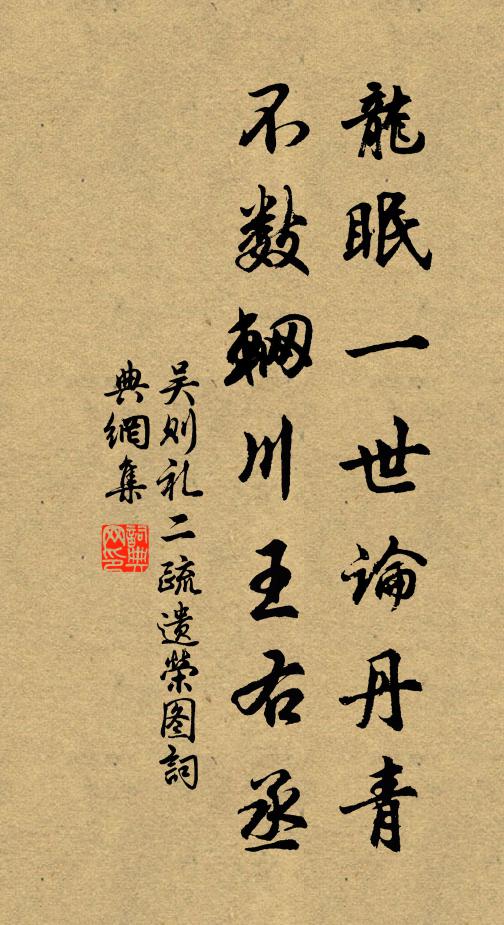 龍眠一世論丹青
不数輞川王右丞
吴则礼二疏遗荣图詞
典網集
詞典網印